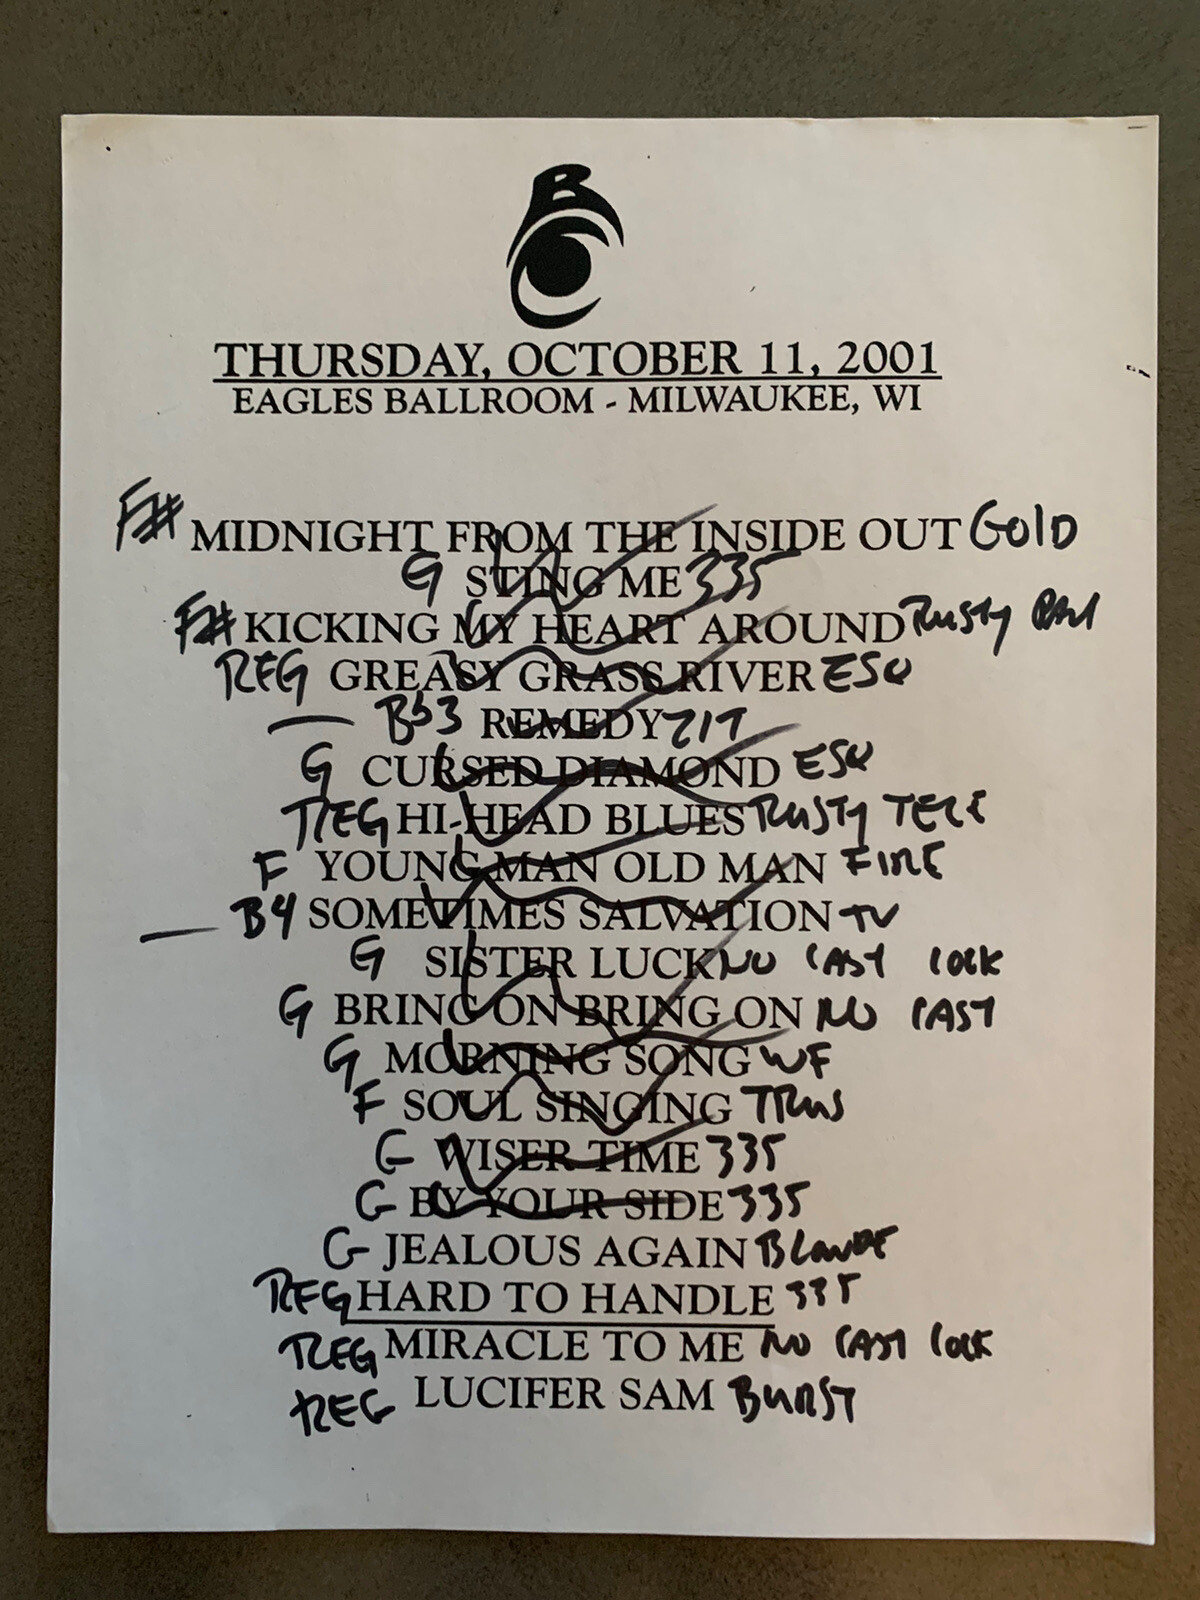 THURSDAY, OCTOBER 11, 2001
EAGLES BALLROOM - MILWAUKEE, WI
F# MIDNIGHT FROM THE INSIDE OUT GOLD
G STING ME 335
F# KICKING MY HEART AROUND RUSTY
REG GREASY GRASS RIVER ESQ
REMEDY
G CURSED DIAMOND ESQ
REG HI-HEAD BLUES RUSTY TELE
F YOUNG MAN OLD MAN FIRE
B4 SOMETIMES SALVATION TV
G SISTER LUCK NO CAST LOCK
G BRING ON BRING ON NO CAST
G MORNING SONG WF
F SOUL SINGING TRUS
G WISER TIME 335
G BY YOUR SIDE 335
G JEALOUS AGAIN BLONDE
REG HARD TO HANDLE 335
REG MIRACLE TO ME NO CAST LOCK
REG LUCIFER SAM BURST